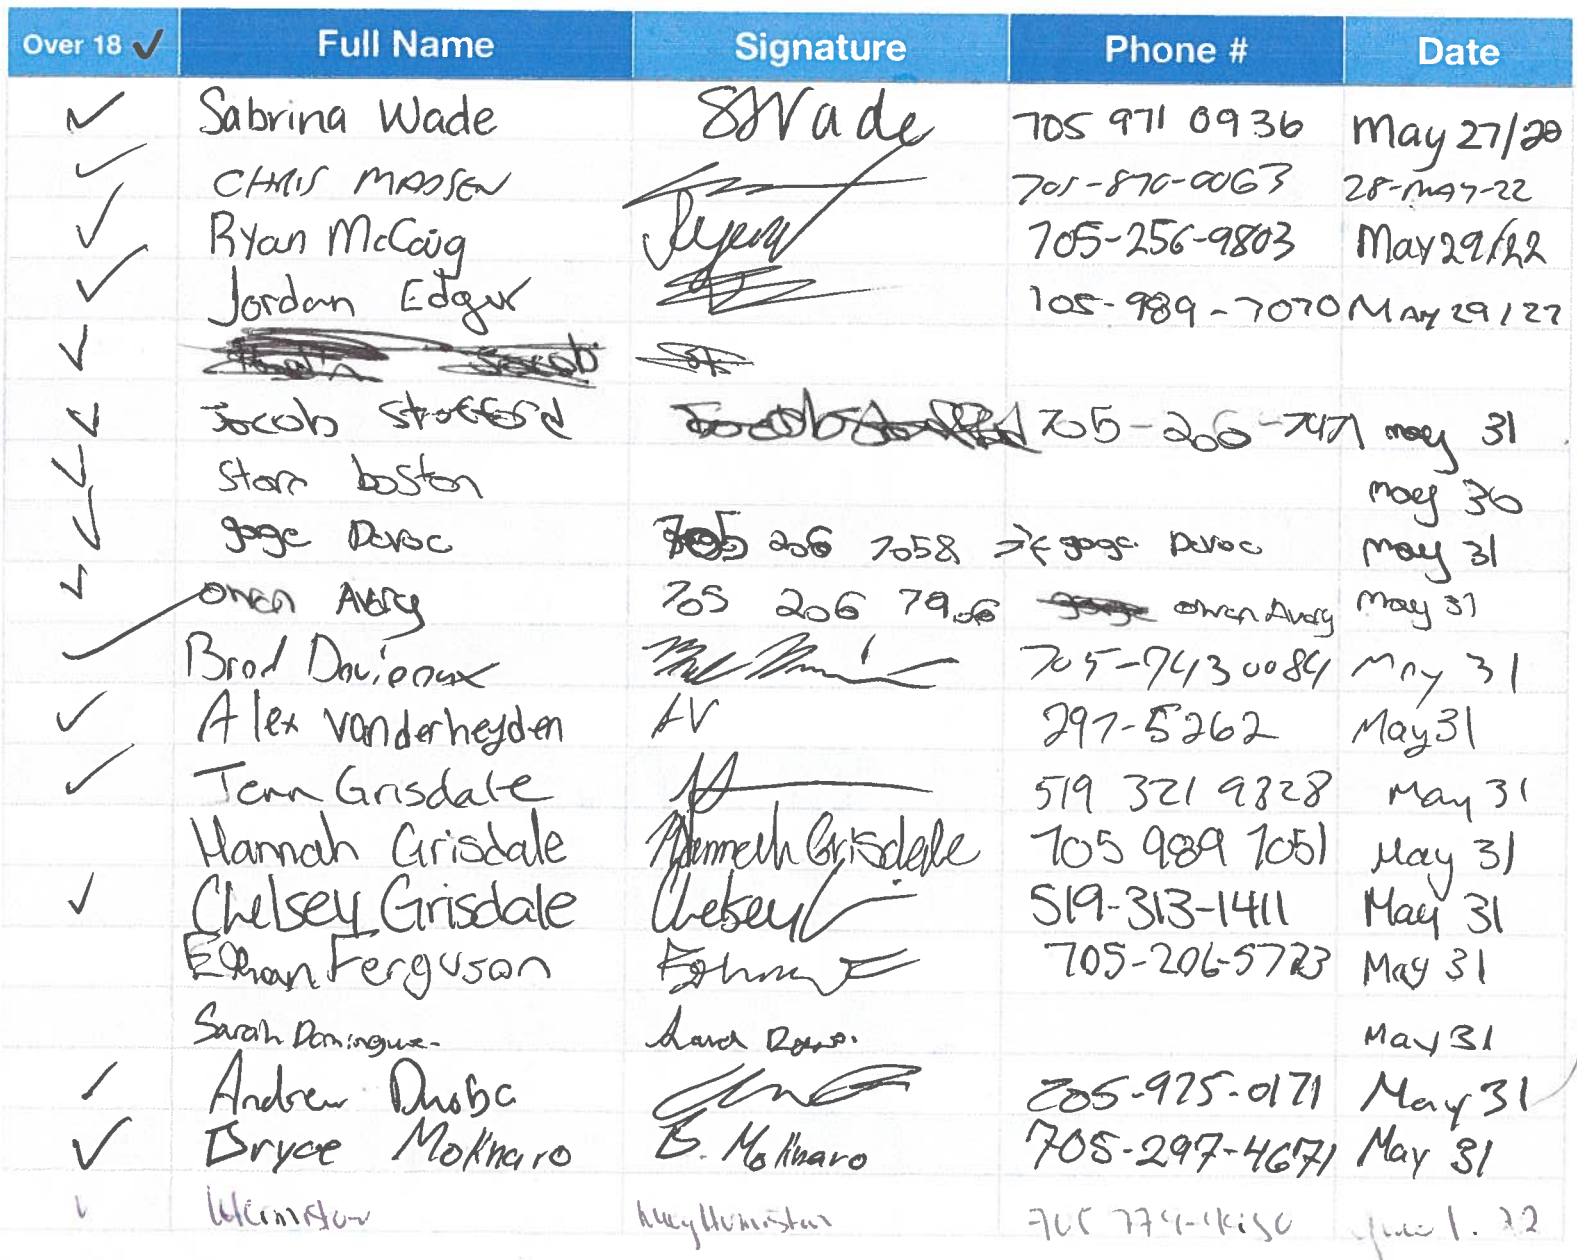 Over 18 ✓ Full Name Signature Phone # Date
✓ Sabrina Wade SWade 705 971 0936 May 27/20
✓ CHRIS MADSEN 705-870-0063 28-MAY-22
✓ Ryan McCaig Ryan 705-256-9803 May 29/22
✓ Jordan Edgar 705-989-7070 May 29/22
✓ Jacob
✓ Jacob Stafford 705-206-7471 may 31
✓ starr boston may 30
✓ gage Deroc 705 206 7058 gage Deroc may 31
✓ owen Avery 705 206 7906 owen Avery may 31
✓ Brad 705-743 0084 May 31
✓ Alex Vanderheyden AV 297-5262 May 31
✓ Jenn Grisdale 519 321 9328 May 31
Hannah Grisdale Hannah Grisdale 705 989 7051 May 31
✓ Chelsey Grisdale Chelsey 519-313-1411 May 31
Ethan Ferguson 705-206-5723 May 31
Sarah Sarah May 31
✓ Andrew 705-975-0171 May 31
✓ Bryce Molinaro B. Molinaro 705-297-4671 May 31
✓ 705